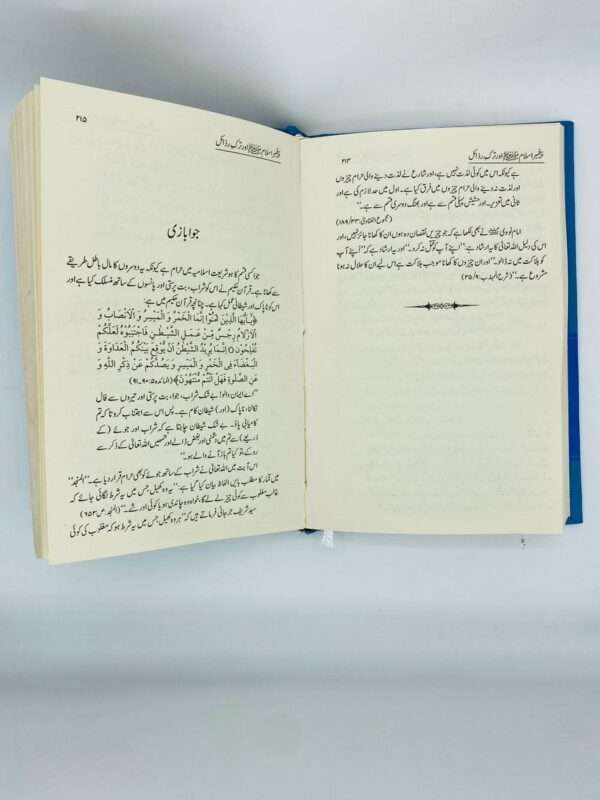 پیغمبر اسلام ﷺ اور ترک رذائل
۲۱۳
ہے کیونکہ اس میں کوئی لذت نہیں ہے، اور شارع نے لذت دینے والی حرام چیزوں
اور لذت نہ دینے والی حرام چیزوں میں فرق کیا ہے۔ اول میں حد لازم کی ہے اور
ثانی میں تعزیر۔ اور حشیش پہلی قسم سے ہے اور بھنگ دوسری قسم سے ہے۔"
(مجموع الفتاویٰ
امام نووی نے بھی لکھا ہے کہ جو چیزیں نقصان دہ ہوں ان کا کھانا جائز نہیں، اور
اس کی دلیل اللہ تعالیٰ کا یہ ارشاد ہے "اپنے آپ کو قتل نہ کرو" اور یہ ارشاد ہے کہ "اپنے آپ
کو ہلاکت میں نہ ڈالو۔" اور ان چیزوں کا کھانا موجب ہلاکت ہے اس لیے ان کا حلال نہ ہونا
مشروع ہے۔" (شرح المہذب
پیغمبر اسلام ﷺ اور ترک رذائل
۲۱۵
جوا بازی
جوا کسی قسم کا ہو شریعت اسلامیہ میں حرام ہے کیونکہ یہ دوسروں کا مال باطل طریقے
سے کھانا ہے۔ قرآن حکیم نے اس کو شراب، بت پرستی اور پانسوں کے ساتھ منسلک کیا ہے اور
اس کو ناپاک اور شیطانی عمل کہا ہے۔ چنانچہ قرآن حکیم میں ہے:
﴿يٰٓاَيُّهَا الَّذِيْنَ اٰمَنُوْا اِنَّمَا الْخَمْرُ وَ الْمَيْسِرُ وَ الْاَنْصَابُ وَ
الْاَزْلَامُ رِجْسٌ مِّنْ عَمَلِ الشَّيْطٰنِ فَاجْتَنِبُوْهُ لَعَلَّكُمْ
تُفْلِحُوْنَ O اِنَّمَا يُرِيْدُ الشَّيْطٰنُ اَنْ يُّوْقِعَ بَيْنَكُمُ الْعَدَاوَةَ وَ
الْبَغْضَآءَ فِى الْخَمْرِ وَ الْمَيْسِرِ وَ يَصُدَّكُمْ عَنْ ذِكْرِ اللّٰهِ وَ
عَنِ الصَّلٰوةِ فَهَلْ اَنْتُمْ مُّنْتَهُوْنَ﴾ (المائدہ ۵: ۹۰-۹۱)
"اے ایمان والو! بے شک شراب، جوا، بت پرستی اور تیروں سے فال
نکالنا، ناپاک (اور) شیطان کام ہے۔ پس اس سے اجتناب کرو تا کہ تم
کامیابی پاؤ۔ بے شک شیطان چاہتا ہے کہ شراب اور جوئے (کے
ذریعے) سے تم میں دشمنی اور بغض ڈالے اور تمہیں اللہ تعالیٰ کے ذکر سے
روکے، تو کیا تم باز آنے والے ہو۔"
اس آیت میں اللہ تعالیٰ نے شراب کے ساتھ جوئے کو بھی حرام قرار دیا ہے۔ "المنجد"
میں قمار کا مطلب بایں الفاظ بیان کیا گیا ہے۔ "یہ وہ کھیل جس میں یہ شرط لگائی جائے کہ
غالب مغلوب سے کوئی چیز لے لے گا، خواہ وہ چاندی ہو یا کوئی اور شے۔" (المنجد، ص ۶۵۳)
سید شریف جرجانی فرماتے ہیں کہ "ہر وہ کھیل جس میں یہ شرط ہو کہ مغلوب کی کوئی